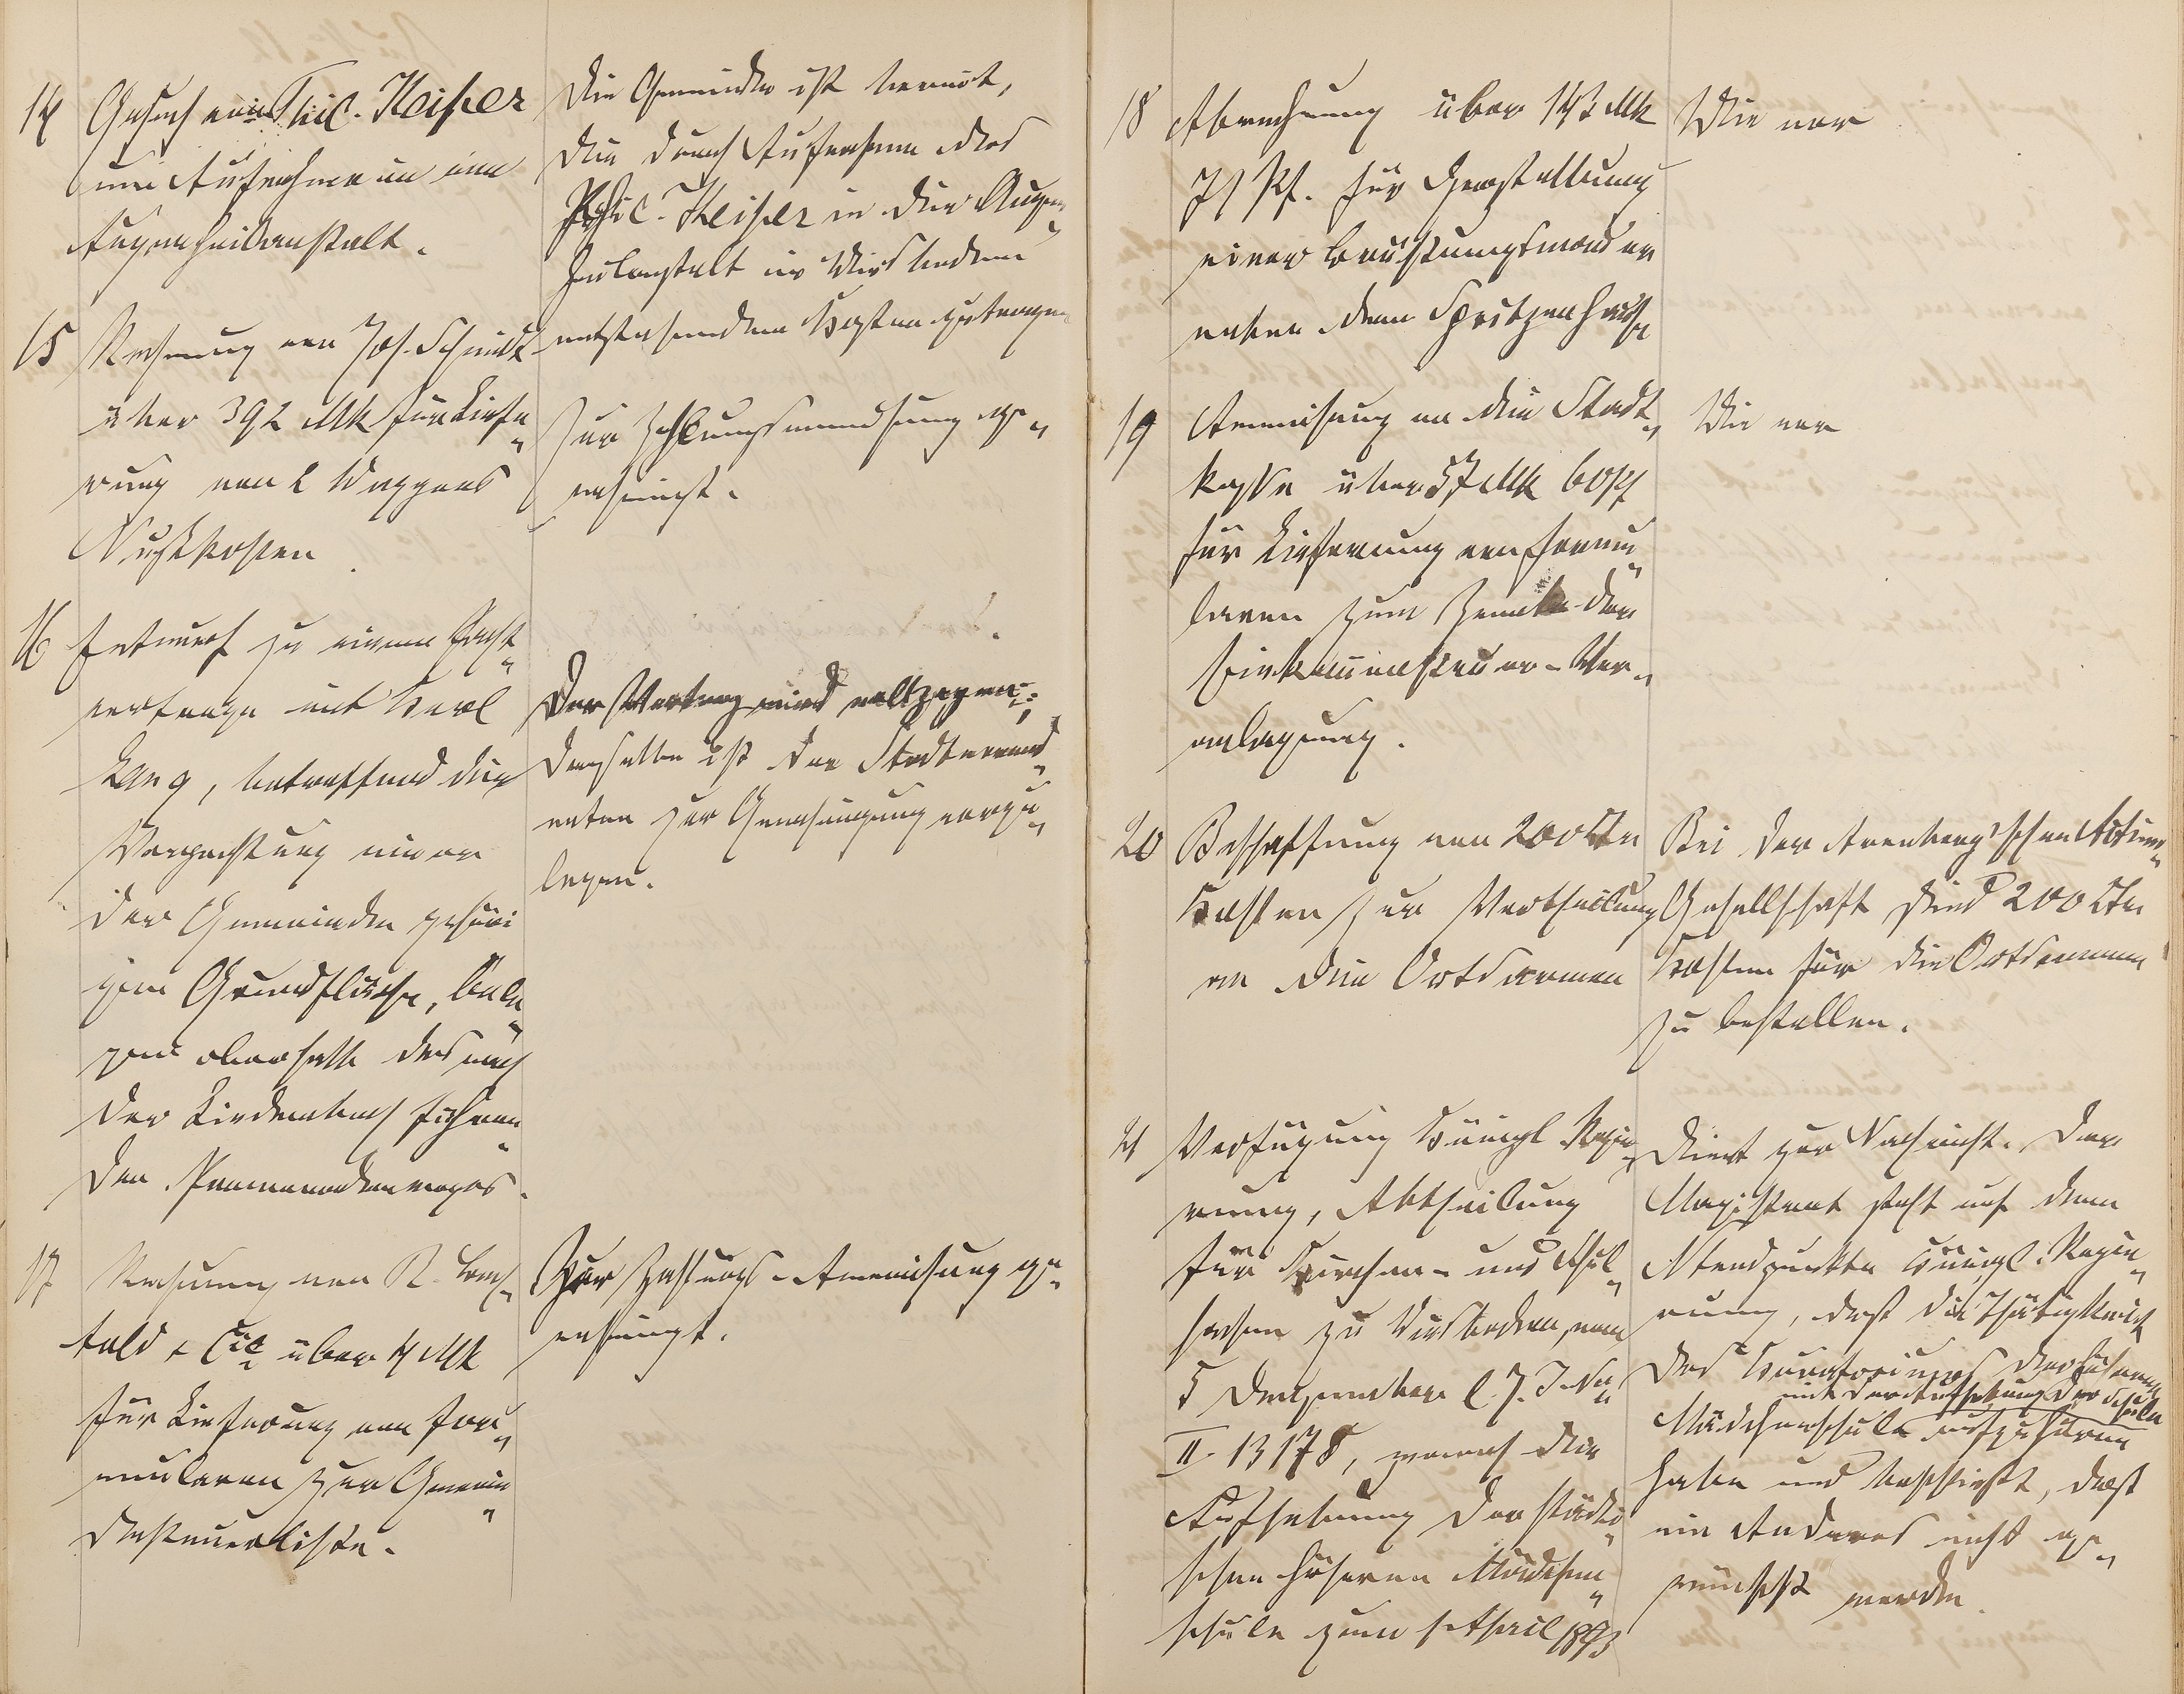 14 Gesuch von Phil. Keiper
um Aufnahme in eine
Augenheilanstalt.
Die Gemeinde ist bereit,
die durch Aufnahme des
Phil. Keiper in die Augen„
heilanstalt in Wiesbaden
entstehenden Kosten zu tragen
15 Rechnung von Jos. Schmidt
über 392 Mk für Liefe„
rung von 2 Waggons
Nußkohlen
Zur Zahlungsanweisung ge„
nehmigt.
16 Entwurf zu einem Pacht„
vertrage mit Karl
Lang, betreffend die
Verpachtung einer
der Gemeinde gehöri
gen Grundfläche, bele„
gen oberhalb des nach
der Lindenbach führen„
den Promenadenweges.
Der Vertrag wird vollzogen;
derselbe ist den Stadtverord„
neten zur Genehmigung vorzu„
legen.
17 Rechnung von R.
feld & Cie über 4 Mk
für Lieferung von For„
mularen zur Gemein„
desteuerliste.
Zur Zahlungs-Anweisung ge„
nehmigt.
18 Abrechnung über 143 Mk
71 Pf. für Herstellung
einer Brüstungsmauer
neben dem Spritzenhause
Wie vor
19 Anweisung an die Stadt„
kasse über 57 Mk 60 Pf
für Lieferung von Formu„
laren zum Zwecke der
Einkommensteuer-Ver„
anlagung.
Wie vor
20 Beschaffung von 200 Ctr
Kohlen zur Vertheilung
an die Ortsarmen
Bei der Arenberg'schen Actien„
Gesellschaft sind 200 Ctr
Kohlen für die Ortsarmen
zu bestellen.
21 Verfügung Königl. Regie„
rung, Abtheilung
für Kirchen- und Schul„
sachen zu Wiesbaden, vom
5 Dezember l. J. No
II. 13178, wonach die
Aufhebung der städti„
schen höheren Mädchen„
schule zum 1 April 1893
Dient zur Nachricht. Der
Magistrat steht auf dem
Standpunkte Königl. Regie„
rung, daß die Thätigkeit
des Kuratoriums der höheren
mit der Aufhebung der Schule
Mädchenschule aufzuhören
habe und beschließt, daß
ein Anderes nicht ge„
wünscht werde.